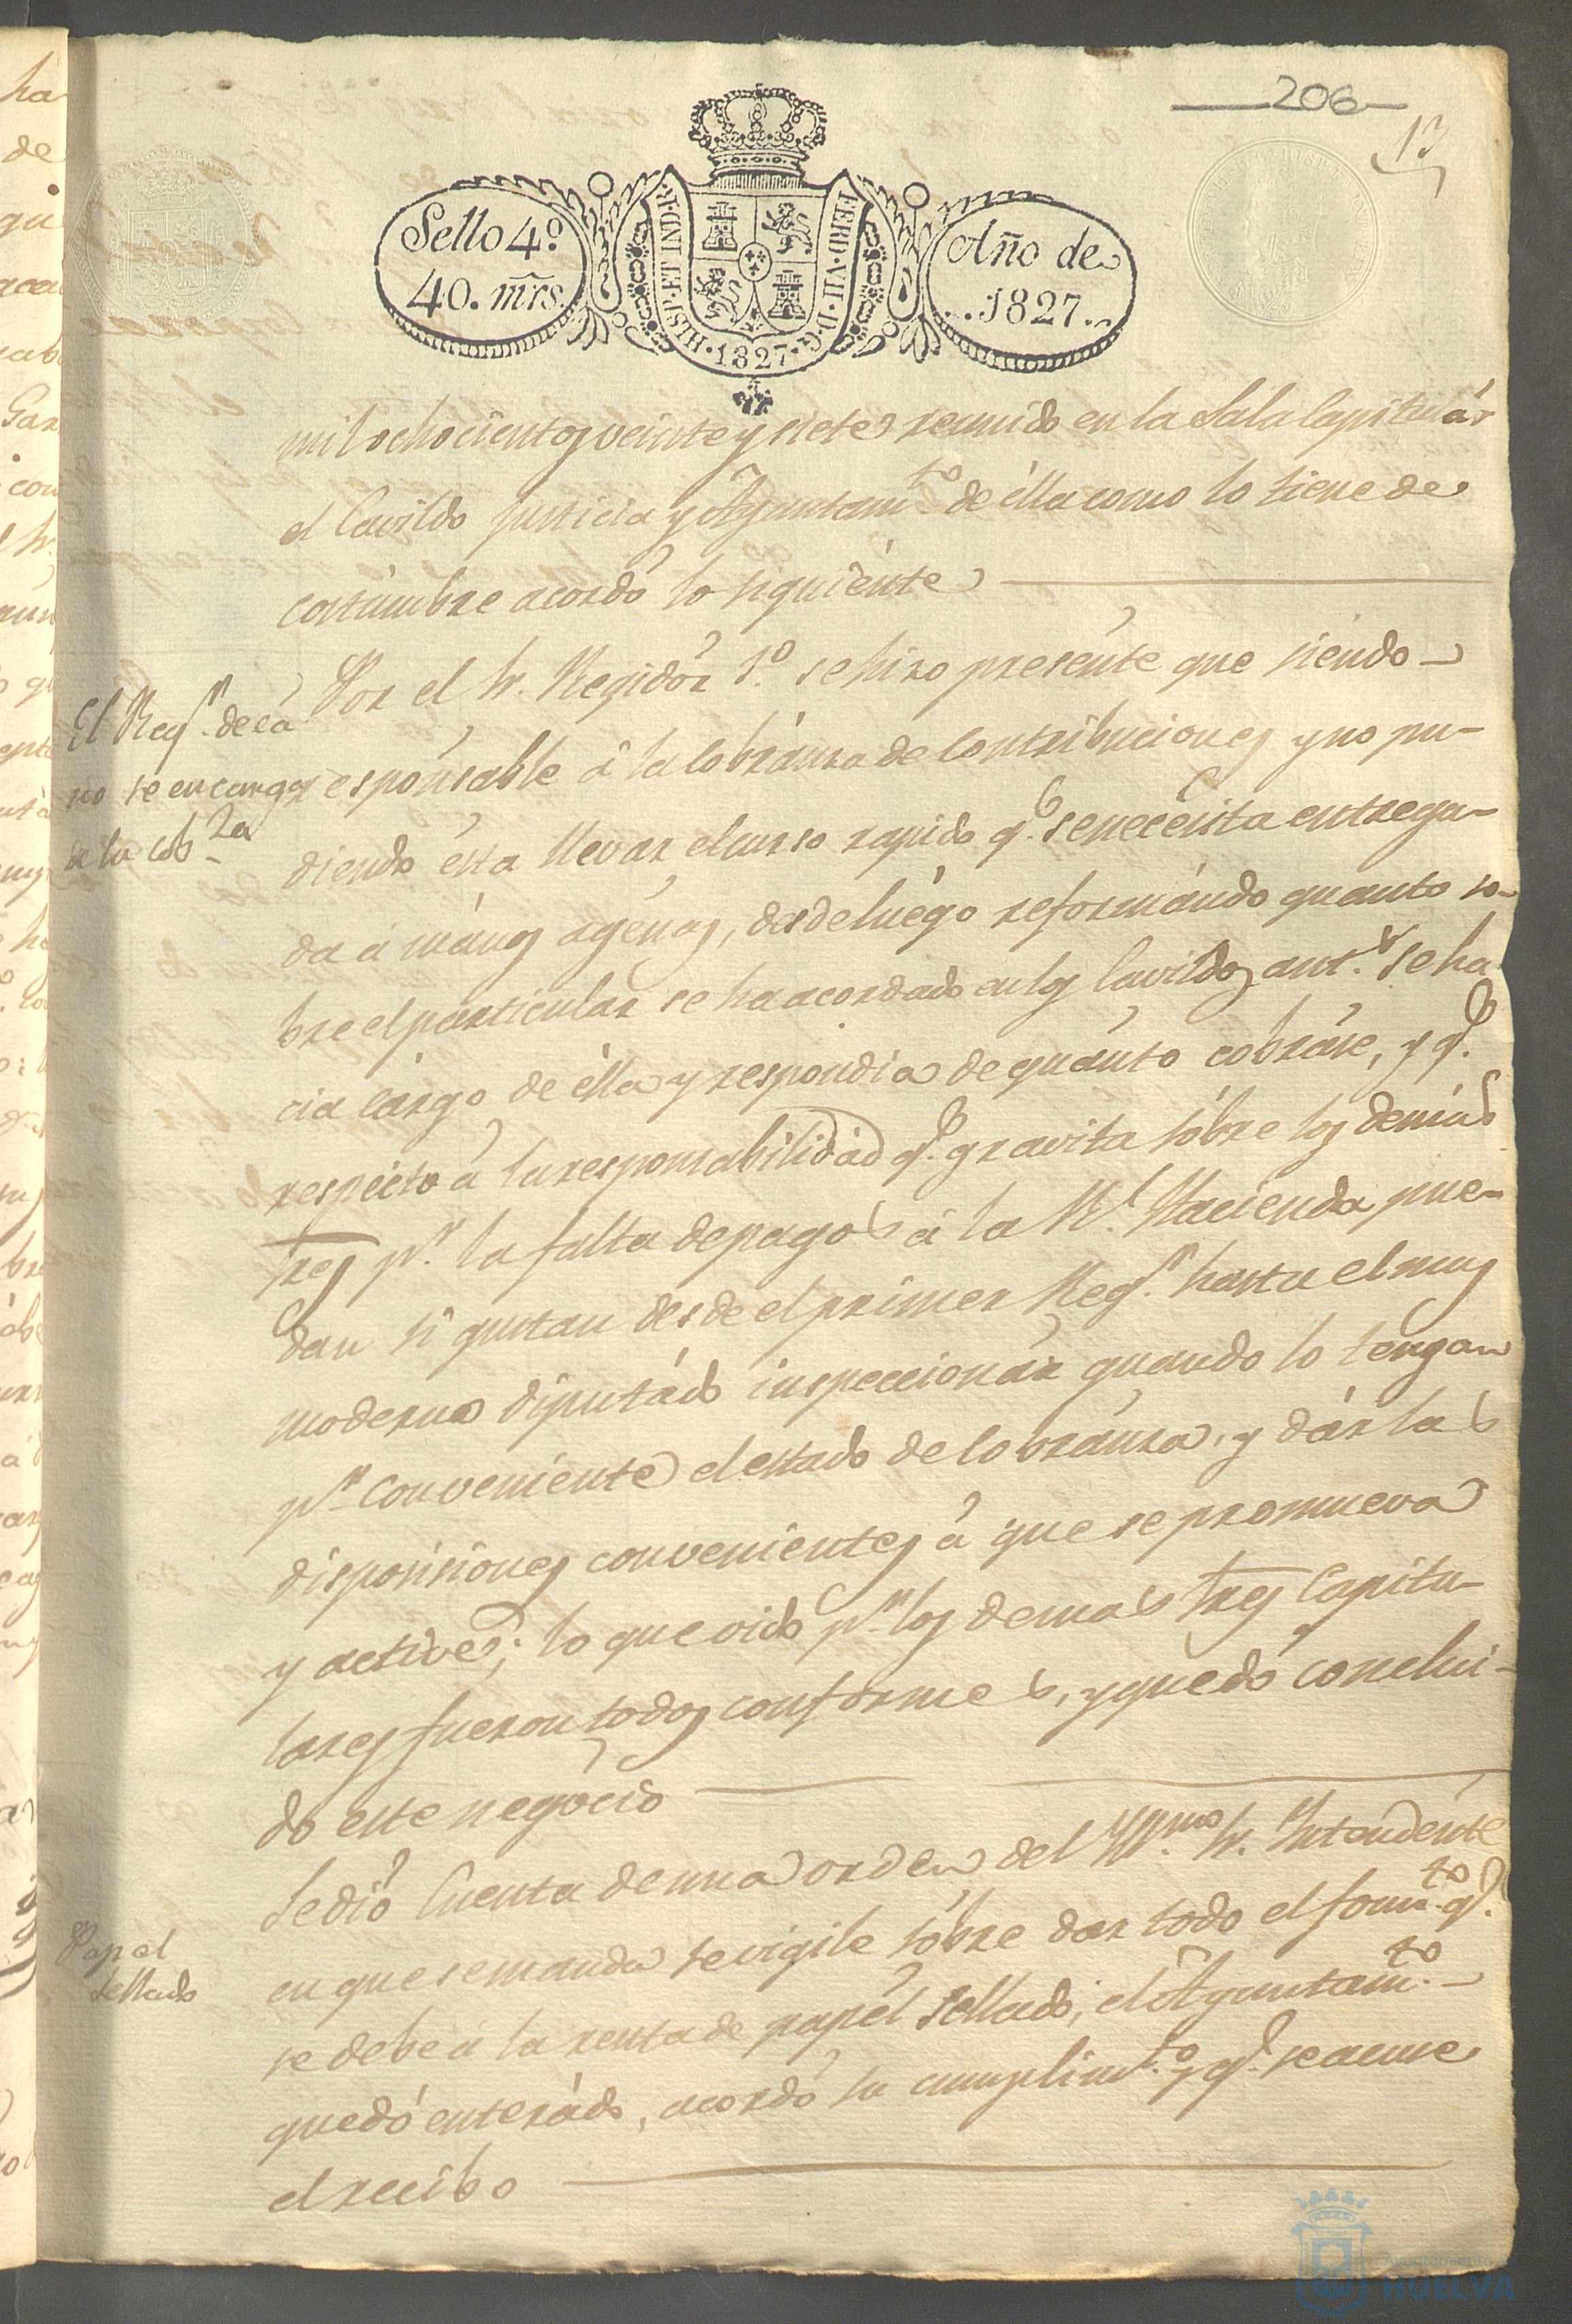 206
13
Sello 4º
40. mrs.
HISP·ET IND·R·
·1827·
FERD·VII·D·G·
Año de
1827
mil ochocientos veinte y siete reunido en la Sala Capitulár
el Cavildo Justicia y Ayuntamto de élla como lo tiene de
costumbre acordó lo siguiente
El Regr. deca
no se encarga
de la cobza
Por el Sr. Regidór 1º se hizo presénte que siendo
responsable á la Cobránza de Contribuciones y no pu-
diendo ésta llevar el curso rapido qe. se necesita entrega-
da á mános agénas, desde luégo reformándo quanto so-
bre el particular se ha acordado en los Cavildos antes. se ha-
cia cárgo de élla y respondia de quánto cobráre, y qe.
respécto á la responsabilidád qe. gravita sóbre los demás
Sres pr. la falta de pagos á la Rl. Hacienda, pue-
dan si gustan desde el primer Regr. hasta el mas
moderno diputádo inspeccionár quando lo tengan
pr. conveniente el estado de Cobránza, y dár las
disposisiones convenientes á que se promueva
y active; lo que oido pr. los demas Sres Capitu-
lares fueron todos conformes, y quedó conclui-
do este negócio
Papel
Sellado
Se dió Cuenta de una orden del Sr. Intendénte
en que se manda se vigile sóbre dar todo el fomto. qe.
se debe á la renta de papél Sellado; el Ayuntamto.
quedó enterádo, acordó su cumplimto. y qe. se acuse
el recibo
Ayuntamiento
HUELVA